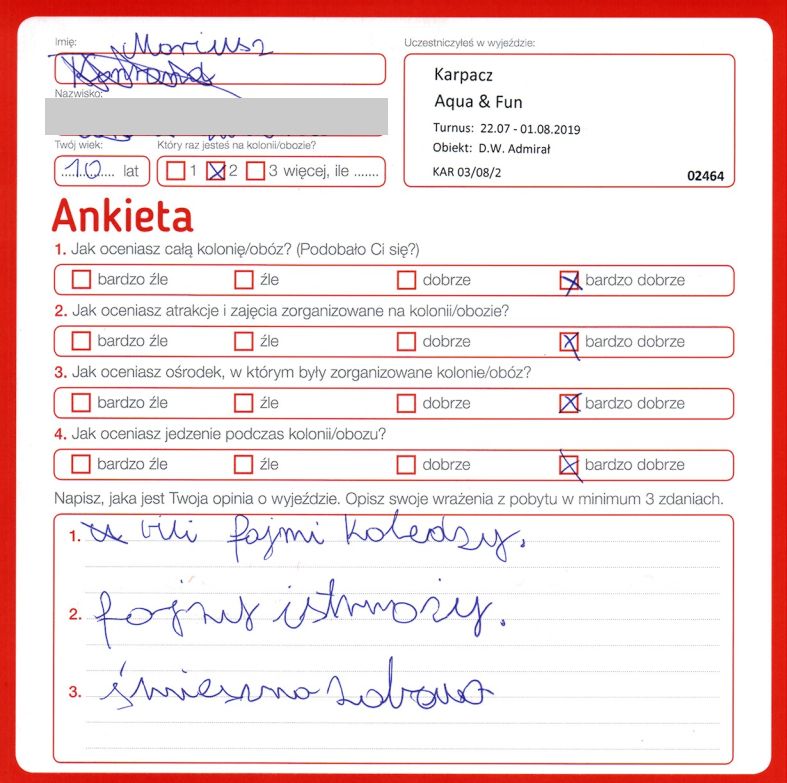 Imię:
Mariusz
Nazwisko:
Twój wiek:
Który raz jesteś na kolonii/obozie?
10 lat
1 2 3 więcej, ile .......
Uczestniczyłeś w wyjeździe:
Karpacz
Aqua & Fun
Turnus: 22.07 - 01.08.2019
Obiekt: D.W. Admirał
KAR 03/08/2
02464
Ankieta
1. Jak oceniasz całą kolonię/obóz? (Podobało Ci się?)
bardzo źle źle dobrze bardzo dobrze
2. Jak oceniasz atrakcje i zajęcia zorganizowane na kolonii/obozie?
bardzo źle źle dobrze bardzo dobrze
3. Jak oceniasz ośrodek, w którym były zorganizowane kolonie/obóz?
bardzo źle źle dobrze bardzo dobrze
4. Jak oceniasz jedzenie podczas kolonii/obozu?
bardzo źle źle dobrze bardzo dobrze
Napisz, jaka jest Twoja opinia o wyjeździe. Opisz swoje wrażenia z pobytu w minimum 3 zdaniach.
1. bili fajmi koledzy.
2. fajny
3. śmieszna zabawa